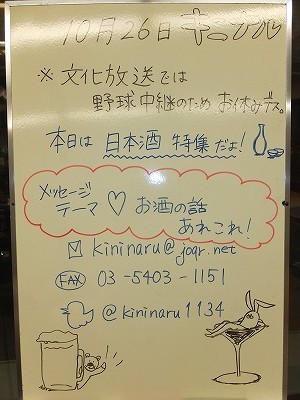 10月26日 キニナル
※ 文化放送では
野球中継のため お休みデス。
本日は 日本酒 特集だよ!
メッセージ
テーマ ♡ お酒の話
あれこれ!
kininaru@joqr.net
FAX 03-5403-1151
@kininaru1134